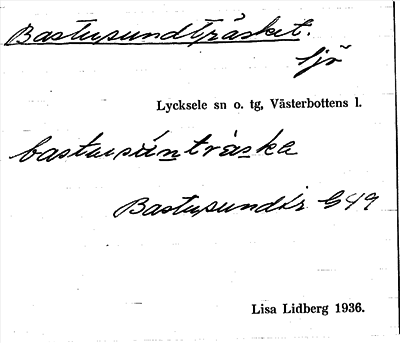 Bastusundträsket.
sjö
Lycksele sn o. tg, Västerbottens l.
bastusúntrạska
Bastusundtr G49
Lisa Lidberg 1936.